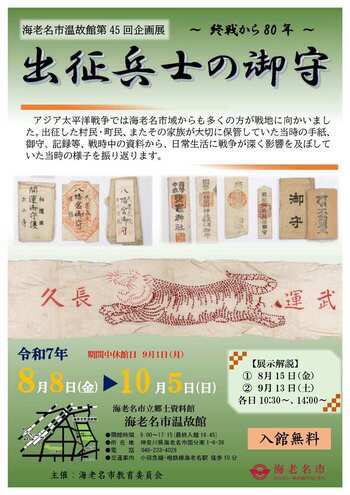 海老名市温故館第45回企画展 ～ 終戦から80年 ～
出征兵士の御守
アジア太平洋戦争では海老名市域からも多くの方が戦地に向かいまし
た。出征した村民・町民、またその家族が大切に保管していた当時の手紙、
御守、記録等、戦時中の資料から、日常生活に戦争が深く影響を及ぼして
いた当時の様子を振り返ります。
開運御守護
八幡宮御守
御守
武運長久
令和7年 期間中休館日 9月1日(月)
8月8日(金)▶10月5日(日)
【展示解説】
① 8月15日(金)
② 9月13日(土)
各日10:30～、14:00～
海老名市立郷土資料館
海老名市温故館
●開館時間 9:00～17:15(最終入館16:45)
●所在地 神奈川県海老名市国分南1-6-36
●電話 046-233-4028
●交通案内 小田急線・相鉄線海老名駅 徒歩10分
入館無料
主催：海老名市教育委員会
海老名市